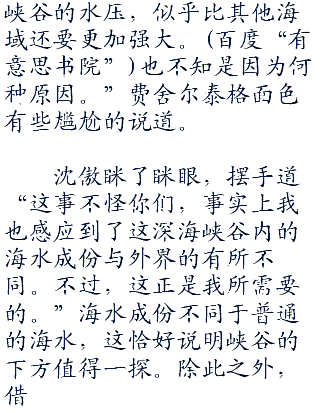 峡谷的水压，似乎比其他海
域还要更加强大。(百度“有
意思书院”)也不知是因为何
种原因。”费舍尔泰格面色
有些尴尬的说道。
沈傲眯了眯眼，摆手道
“这事不怪你们，事实上我
也感应到了这深海峡谷内的
海水成份与外界的有所不
同。不过，这正是我所需要
的。”海水成份不同于普通
的海水，这恰好说明峡谷的
下方值得一探。除此之外，
借